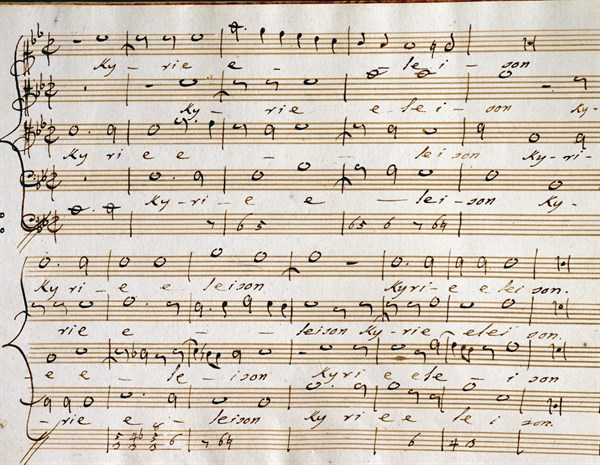 Ky - rie e - - lei - son
Ky - rie e - lei - son Ky -
Ky rie e - - leison Ky - ri -
Ky - ri - e e - leison Ky -
7 6 5 6 5 6 7 6 4
Ky rie e leison Kyrie e leison.
rie e - - leison Ky - rie elei son.
e e - lei - ison Kyri e ele - i son
- rie e - i - leison Kyrie e le i son.
6 7 6 4 6 4 3